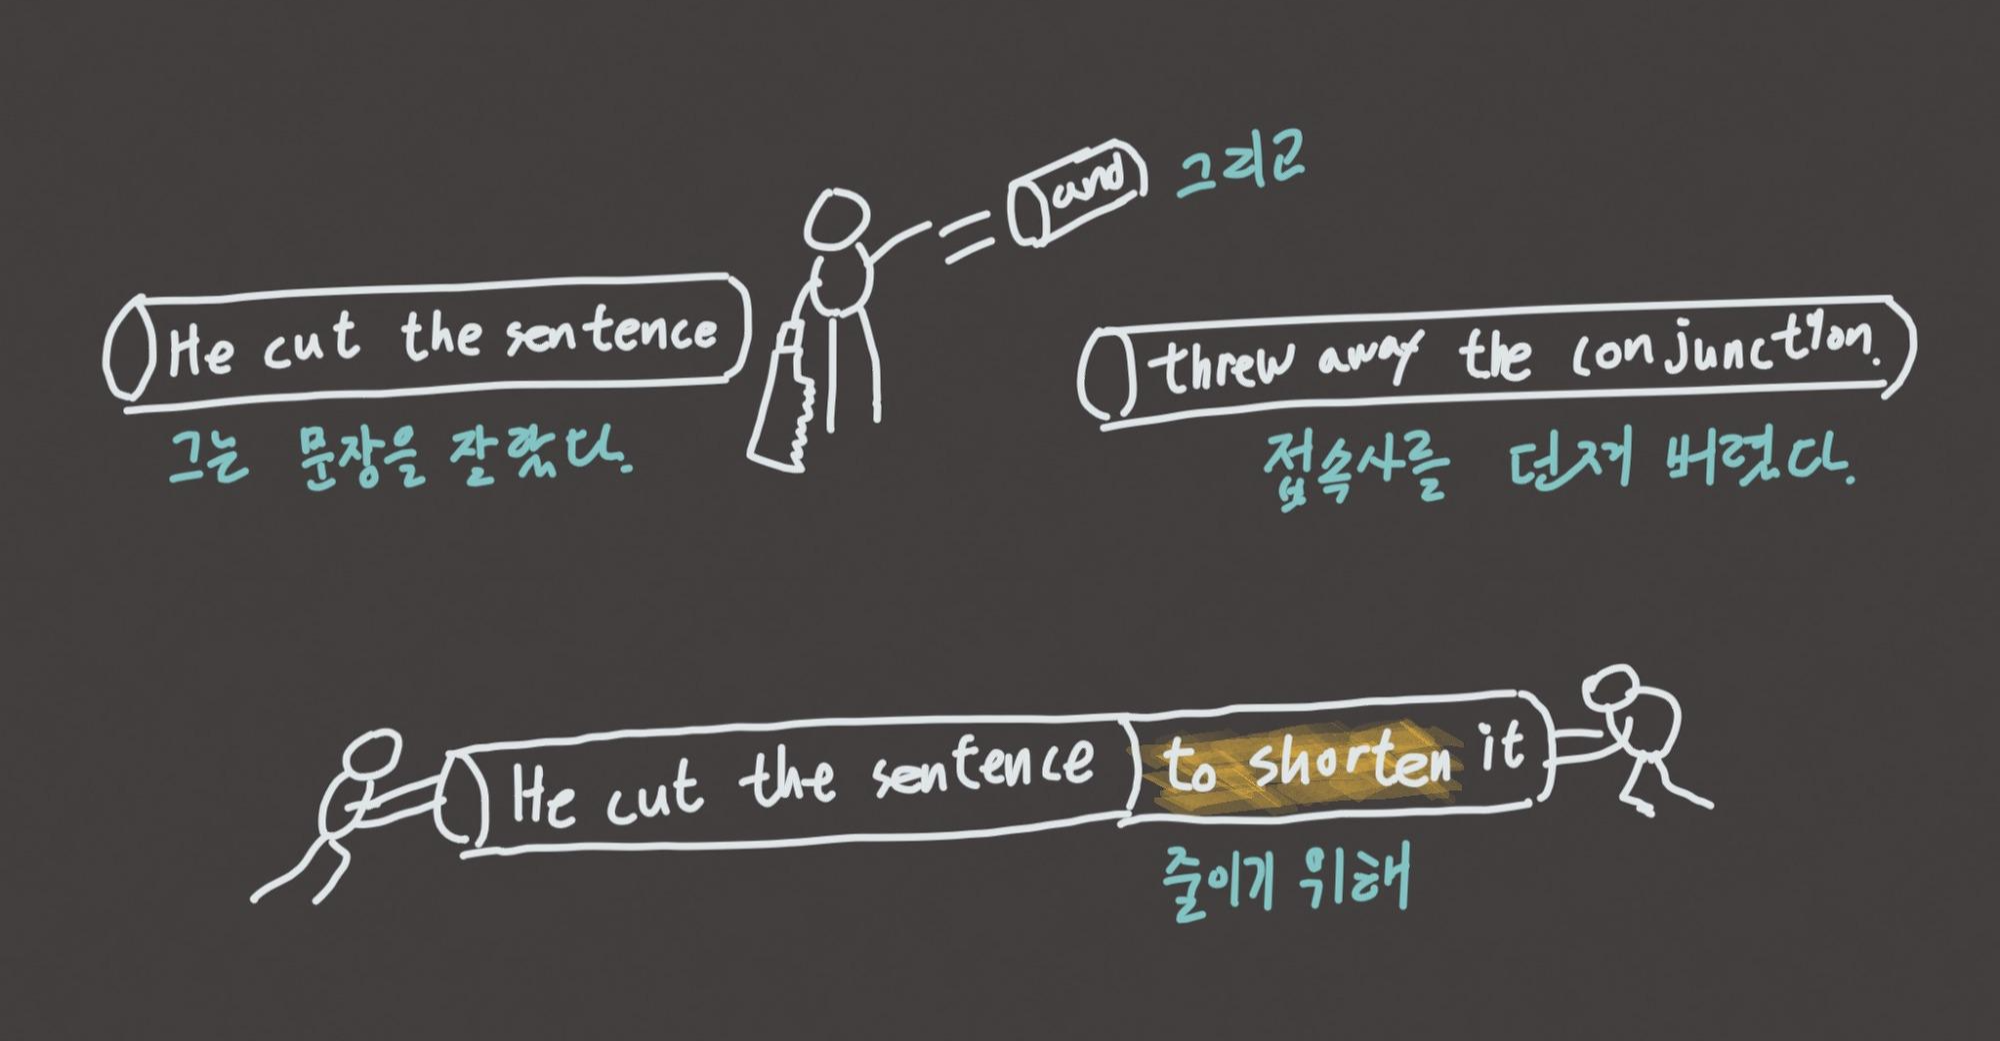 and 그리고
He cut the sentence
threw away the conjunction.
그는 문장을 잘랐다.
접속사를 던져 버렸다.
He cut the sentence to shorten it
줄이기 위해